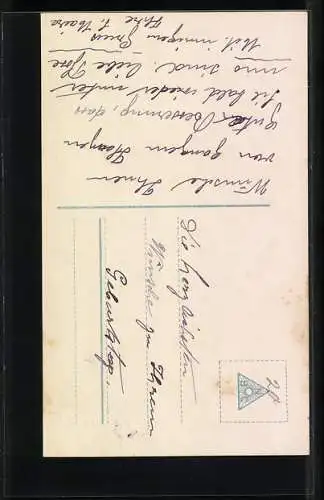 Die herzlichsten
Wünsche zu Ihrem
Geburtstage.
Wünsche Ihnen
von ganzem Herzen
gute Besserung, dass
Sie bald wieder unter
uns sind. liebe
Mit innigem Gruss
Ihre